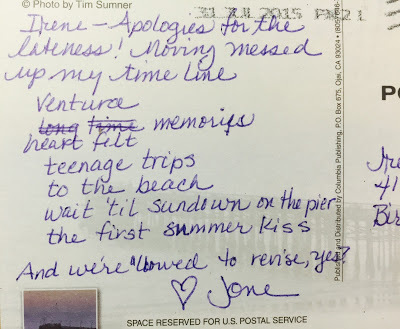 © Photo by Tim Sumner
31 JUL 2015 PM 2 L
Irene – Apologies for the
lateness! Moving messed
up my time line
Ventura
long time memories
heart felt
teenage trips
to the beach
wait 'til sundown on the pier
the first summer kiss
And we're allowed to revise, yes?
♡ Jone
Published and Distributed by Columbia Publishing, P.O. Box 675, Ojai, CA 93024 • (805)
PO
Ire
41
Bir
SPACE RESERVED FOR U.S. POSTAL SERVICE